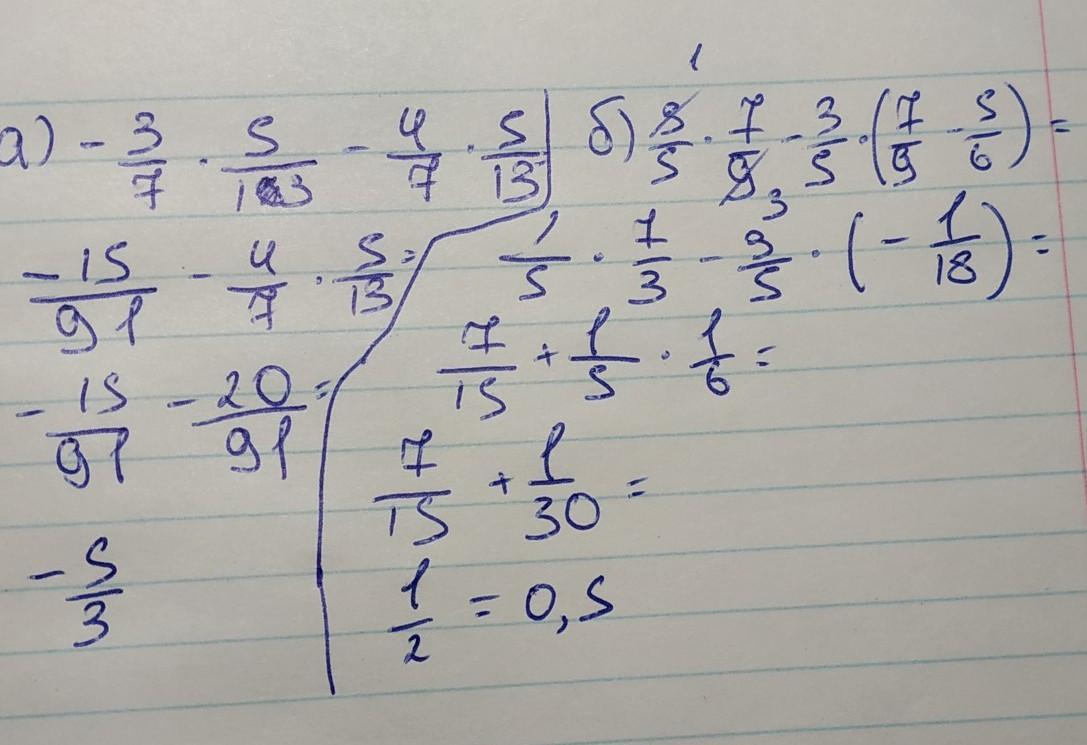 а) - 3/7 · 5/13 - 4/7 · 5/13
-15/91 - 4/7 · 5/13 =
- 15/91 - 20/91 =
- 5/3
1
б) 3/5 · 7/9 - 3/5 · (7/9 - 5/6) =
3
1/5 · 7/3 - 3/5 · (- 1/18) =
7/15 + 1/5 · 1/6 =
7/15 + 1/30 =
1/2 = 0,5